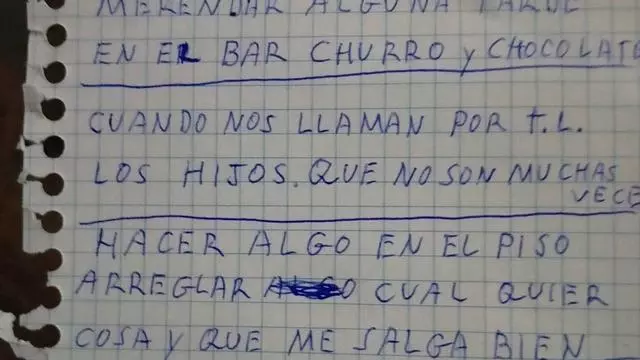 MERENDAR ALGUNA TARDE
EN EL BAR CHURRO y CHOCOLATE
CUANDO NOS LLAMAN POR t.L.
LOS HIJOS. QUE NO SON MUCHAS
VECE
HACER ALGO EN EL PISO
ARREGLAR CUAL QUIER
COSA Y QUE ME SALGA BIEN